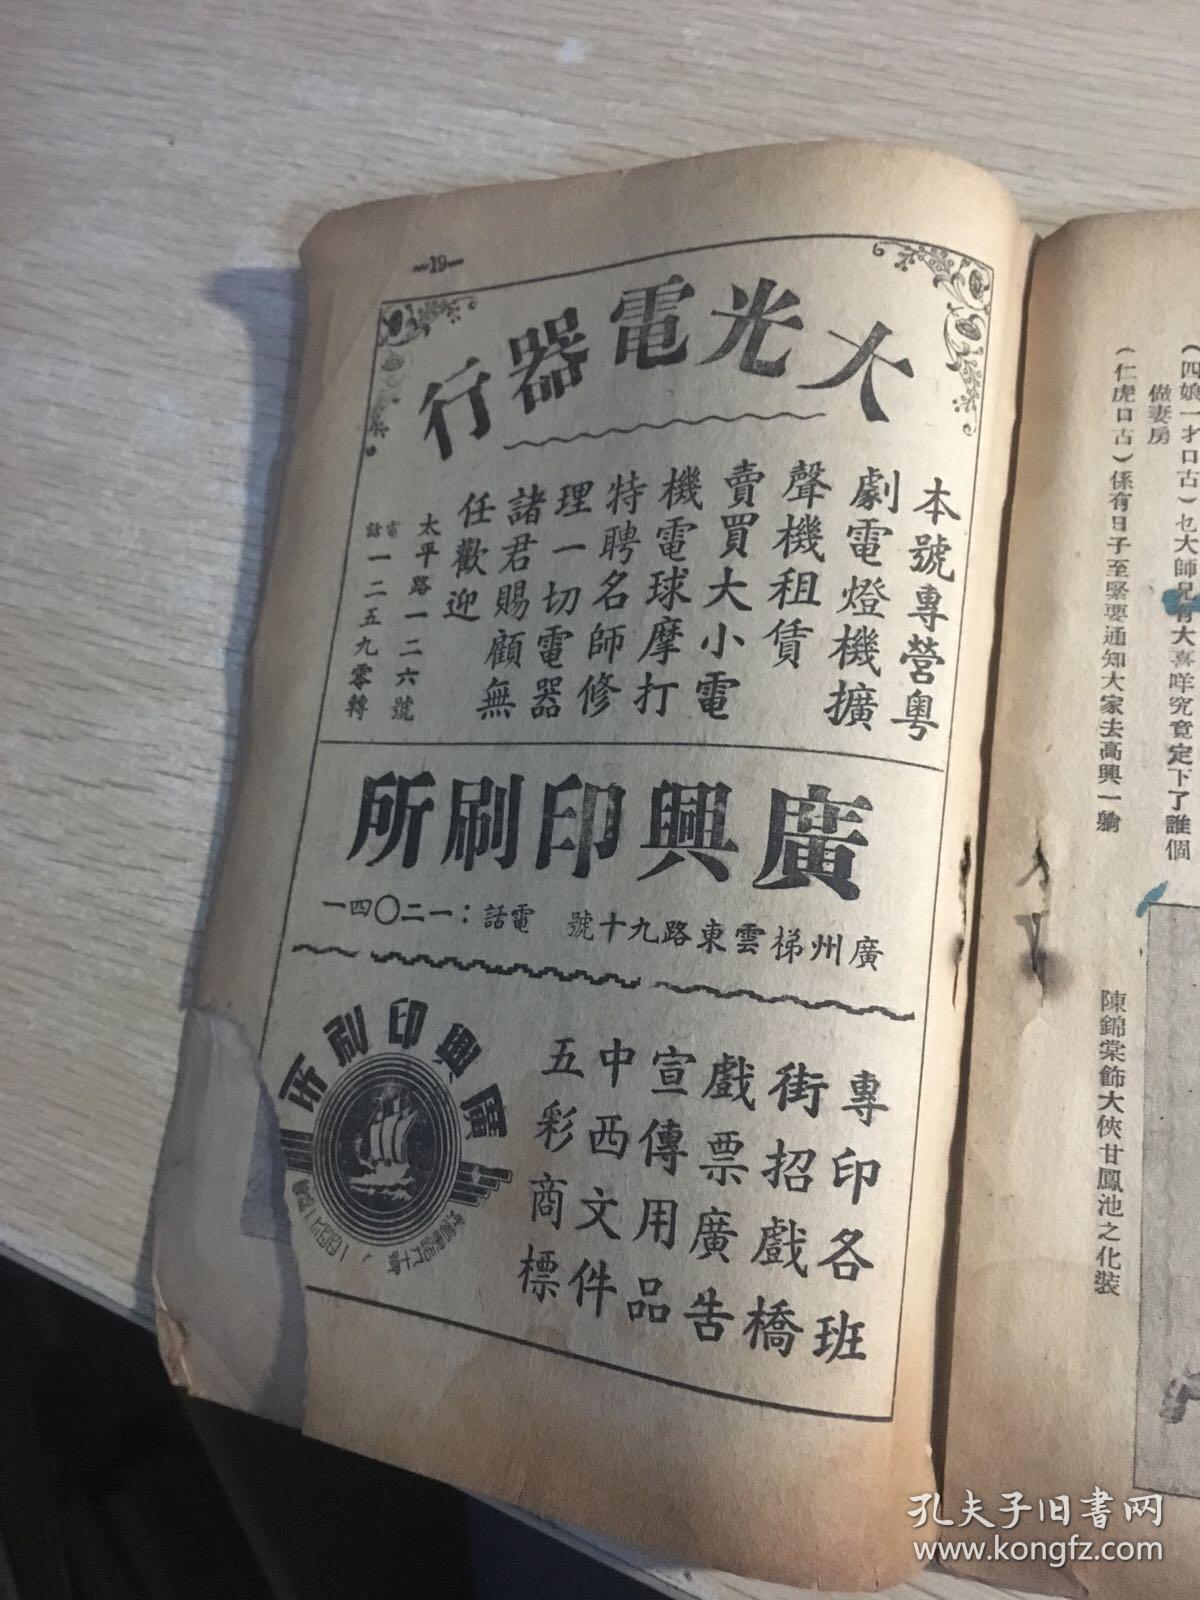 ~19~
大光電器行
本號專營粤
劇電燈機擴
聲機租賃
賣買大小電
機電球摩打
特聘名師修
理一切電器
諸君賜顧無
任歡迎
太平路一二六號
電話一二五九零轉
廣興印刷所
廣州梯雲東路九十號 電話:一二〇四一
專印各班
街招戲橋
戲票廣告
宣傳用品
中西文件
五彩商標
廣興印刷所
(四娘一才口古)乜大師兄有大喜咩究竟定下了誰個
做妻房
(仁虎口古)係有日子至緊要通知大家去高興一躺
陳錦棠飾大俠甘鳳池之化裝
孔夫子旧书网
www.kongfz.com